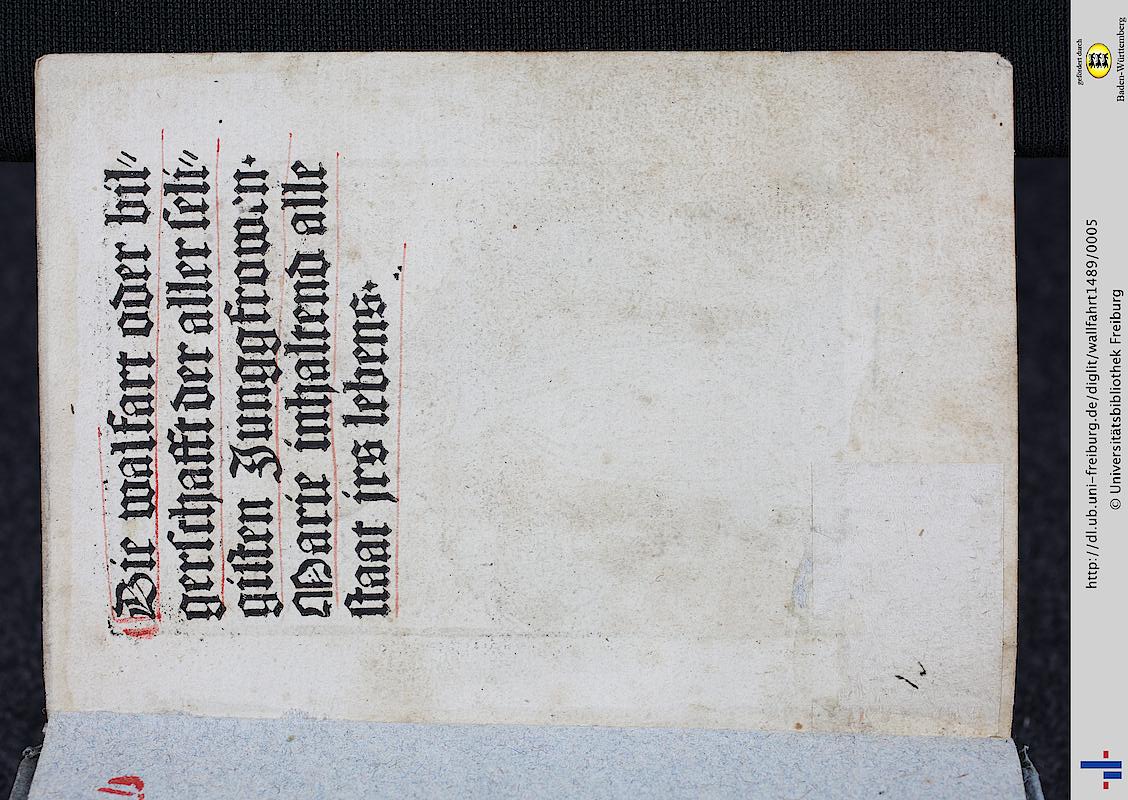 Die walfart oder bil⸗
gerschafft der aller seli⸗
gisten Junggfrowen.
Marie inhaltend alle
staat jrs lebens.
http://dl.ub.uni-freiburg.de/diglit/wallfahrt1489/0005
© Universitätsbibliothek Freiburg
gefördert durch
Baden-Württemberg